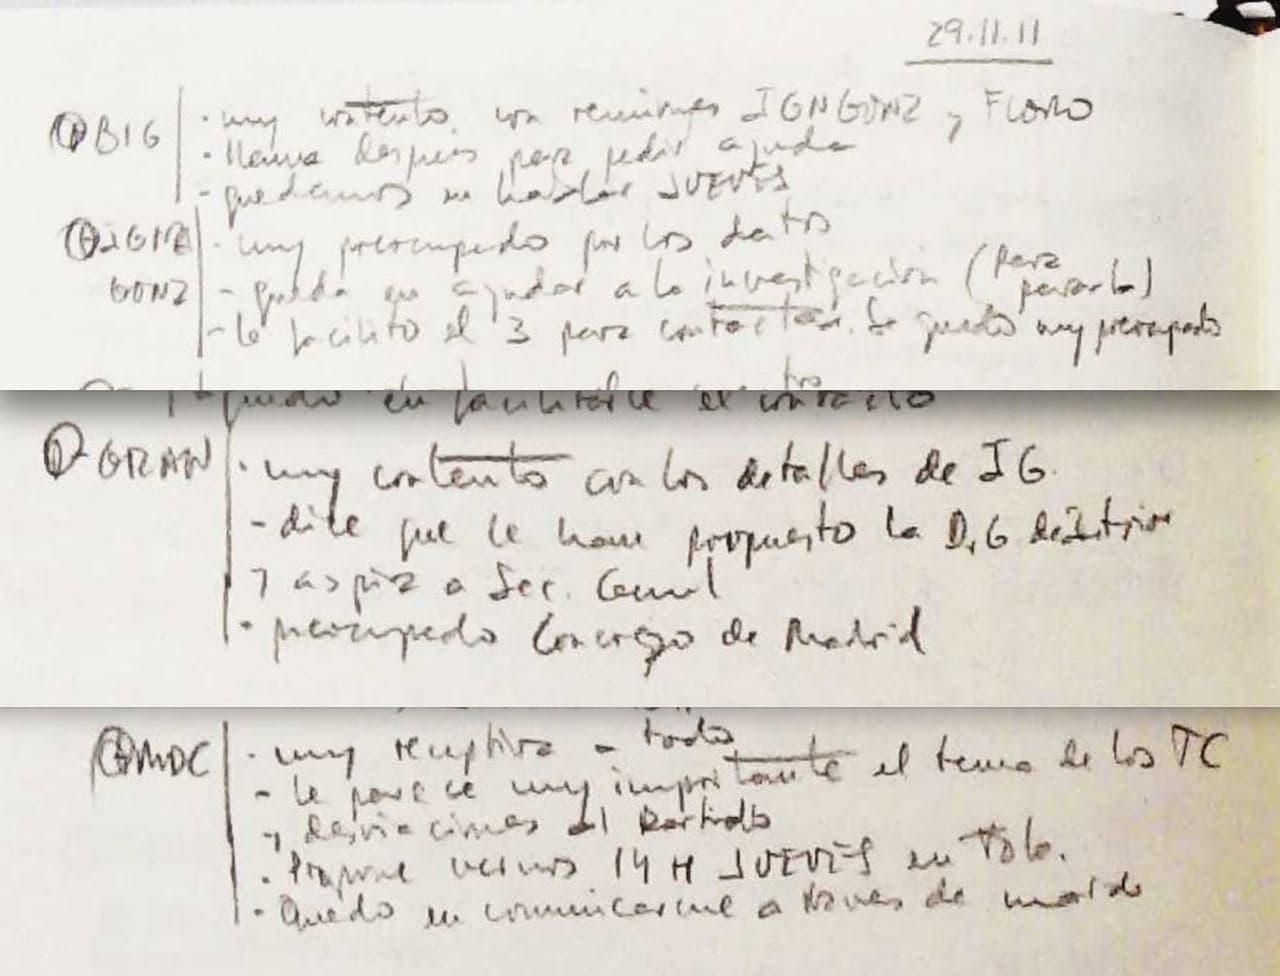 29.11.11
BIG · muy contento con reuniones IGNGONZ y FLORO
· llama después para pedir ayuda
- quedamos en hablar JUEVES
IGN · muy preocupado por los datos
GONZ - queda en ayudar a la investigación (para pararla)
- le facilito el 3 para contactar. Se quedó muy preocupado
quedo en facilitarle el contacto
GRAN · muy contento con los detalles de IG.
- dice que le han propuesto la D.G de Interior
y aspira a Sec. General
· preocupado Consejo de Madrid
MDC · muy receptiva a todo
- le parece muy importante el tema de los TC
y desviaciones al Partido
· Propone vernos 14 H JUEVES en
· Quedo en comunicarme a través de marido